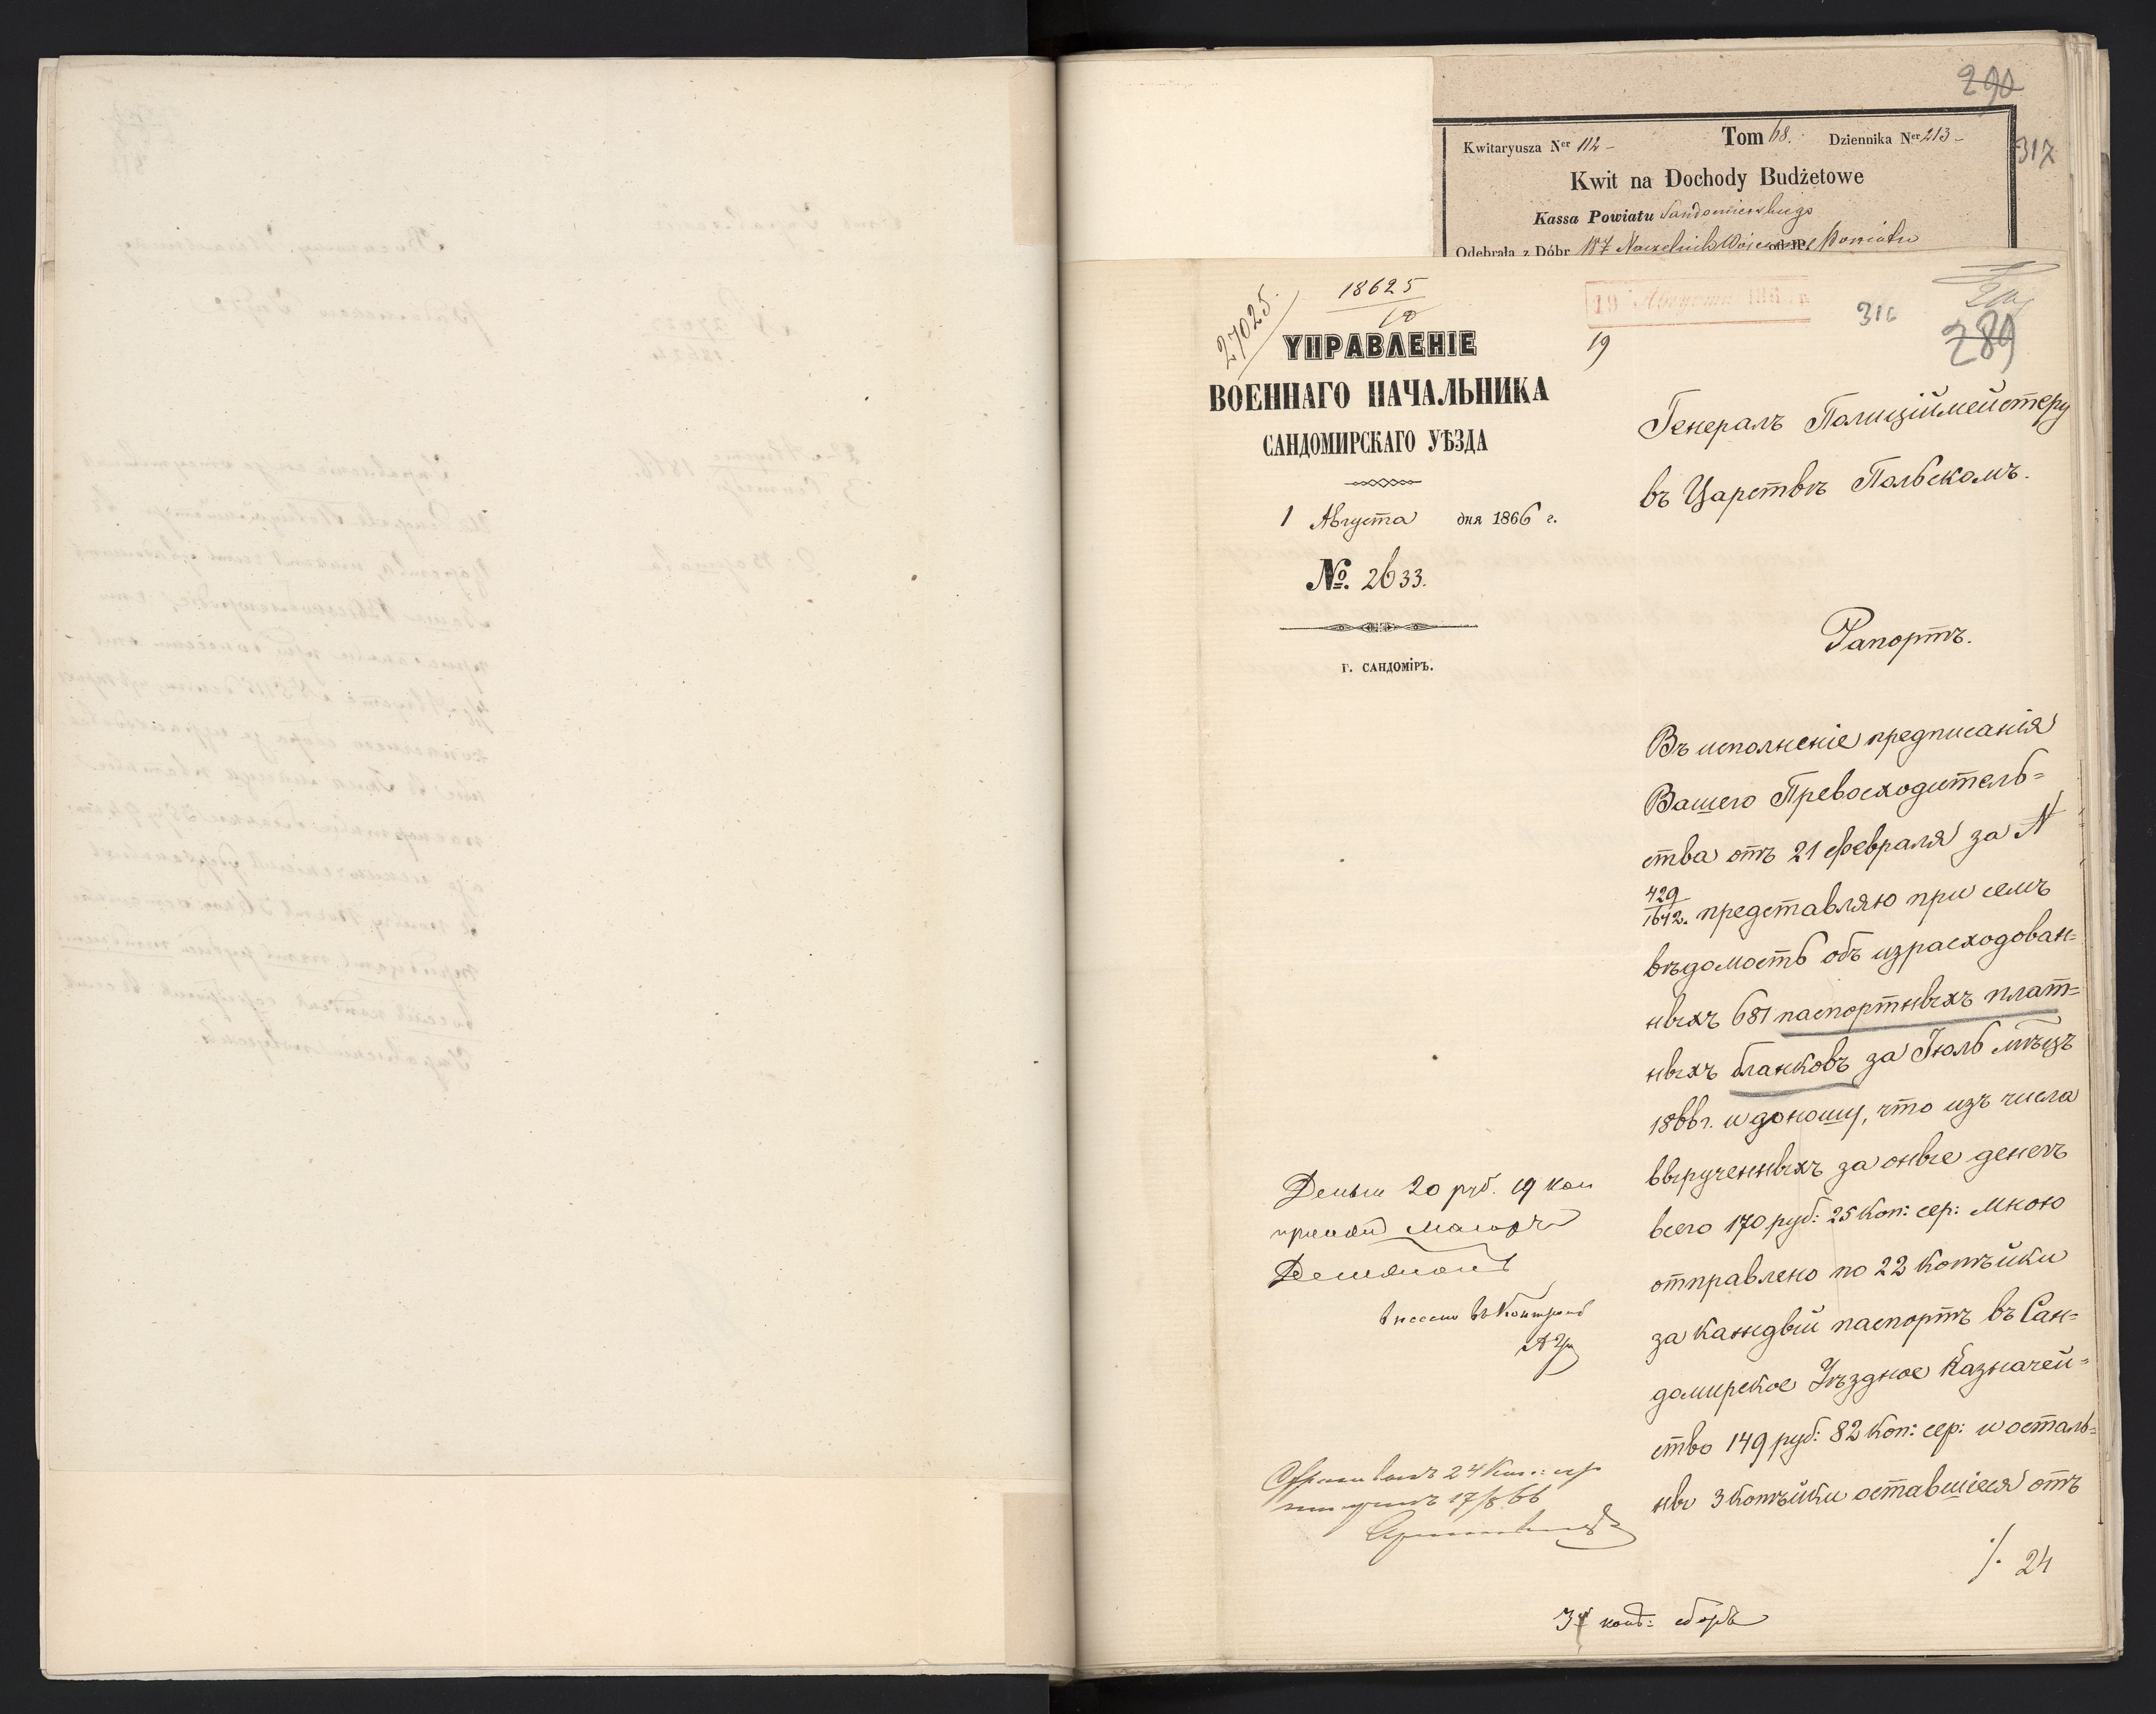 290
317
Kwitaryusza Ner 112 – Tom 68. Dziennika Ner 213 –
Kwit na Dochody Budżetowe
Kassa Powiatu Sandomierskiego
Odebrała z Dóbr 187 Naczelnik Wojenny Powiatu
27025.
18625
10
19 Августа 186 г.
19
316
289
УПРАВЛЕНІЕ
ВОЕННАГО НАЧАЛЬНИКА
САНДОМИРСКАГО УѢЗДА
1 Августа дня 1866 г.
№. 2633.
г. САНДОМІРЪ.
Генералъ Полиціймейстеру
въ Царствѣ Польскомъ.
Рапортъ.
Въ исполненіе предписанія
Вашего Превосходитель=
ства отъ 21 февраля за N
429/1642. представляю при семъ
вѣдомость объ израсходован=
ныхъ 681 паспортныхъ плат=
ныхъ бланковъ за Іюль мѣцъ
1866г. и доношу, что изъ числа
вырученныхъ за оные денегъ
всего 170 руб: 25 коп: сер: мною
отправлено по 22 копѣйки
за каждый паспортъ въ Сан=
домирское Уѣздное Казначей=
ство 149 руб: 82 коп: сер: и осталь=
ны 3 копѣйки оставшіеся отъ
Деньги 20 руб. 19 коп
принялъ Маіоръ
внесено въ Контроль
24 коп: сер
получилъ 17/8 66
./. 24
3 конт: сборъ